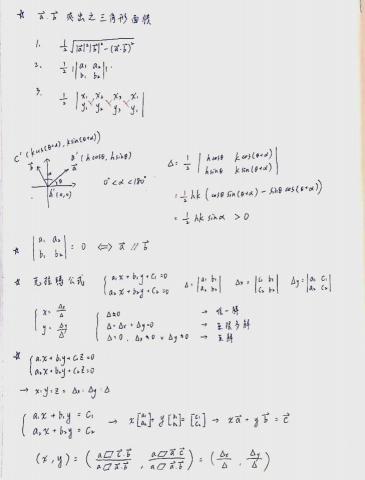 ☆ a⃗.b⃗ 夾出之三角形面積
1. 1/2 √(|a⃗|²|b⃗|²-(a⃗·b⃗)²)
2. 1/2 | |a₁ a₂; b₁ b₂| |
3. 1/2 | x₁ x₂ x₃ x₁; y₁ y₂ y₃ y₁ |
C'(kcos(θ+α), ksin(θ+α))
B'(hcosθ, hsinθ)
b⃗ a⃗
α θ
A'(0,0)
0°<α<180°
Δ = 1/2 | hcosθ kcos(θ+α); hsinθ ksin(θ+α) |
= 1/2 hk (cosθ sin(θ+α) - sinθ cos(θ+α))
= 1/2 hk sinα > 0
☆ | a₁ a₂; b₁ b₂ | = 0 ⟺ a⃗ // b⃗
☆ 克拉瑪公式 { a₁x+b₁y+C₁=0; a₂x+b₂y+C₂=0 Δ=|a₁ b₁; a₂ b₂| Δx=|c₁ b₁; c₂ b₂| Δy=|a₁ c₁; a₂ c₂|
{ x = Δx/Δ; y = Δy/Δ
{ Δ≠0 → 唯一解
Δ=Δx=Δy=0 → 無限多解
Δ=0, Δx≠0 ∨ Δy≠0 → 無解
☆ { a₁x+b₁y+C₁z=0; a₂x+b₂y+C₂z=0
→ x:y:z = Δx:Δy:Δ
{ a₁x+b₁y=C₁; a₂x+b₂y=C₂ → x[a₁; a₂]+y[b₁; b₂]=[c₁; c₂] → xa⃗+yb⃗=c⃗
(x,y) = ( a▱c⃗.b⃗/a▱a⃗.b⃗ , a▱a⃗.c⃗/a▱a⃗.b⃗ ) = ( Δx/Δ , Δy/Δ )